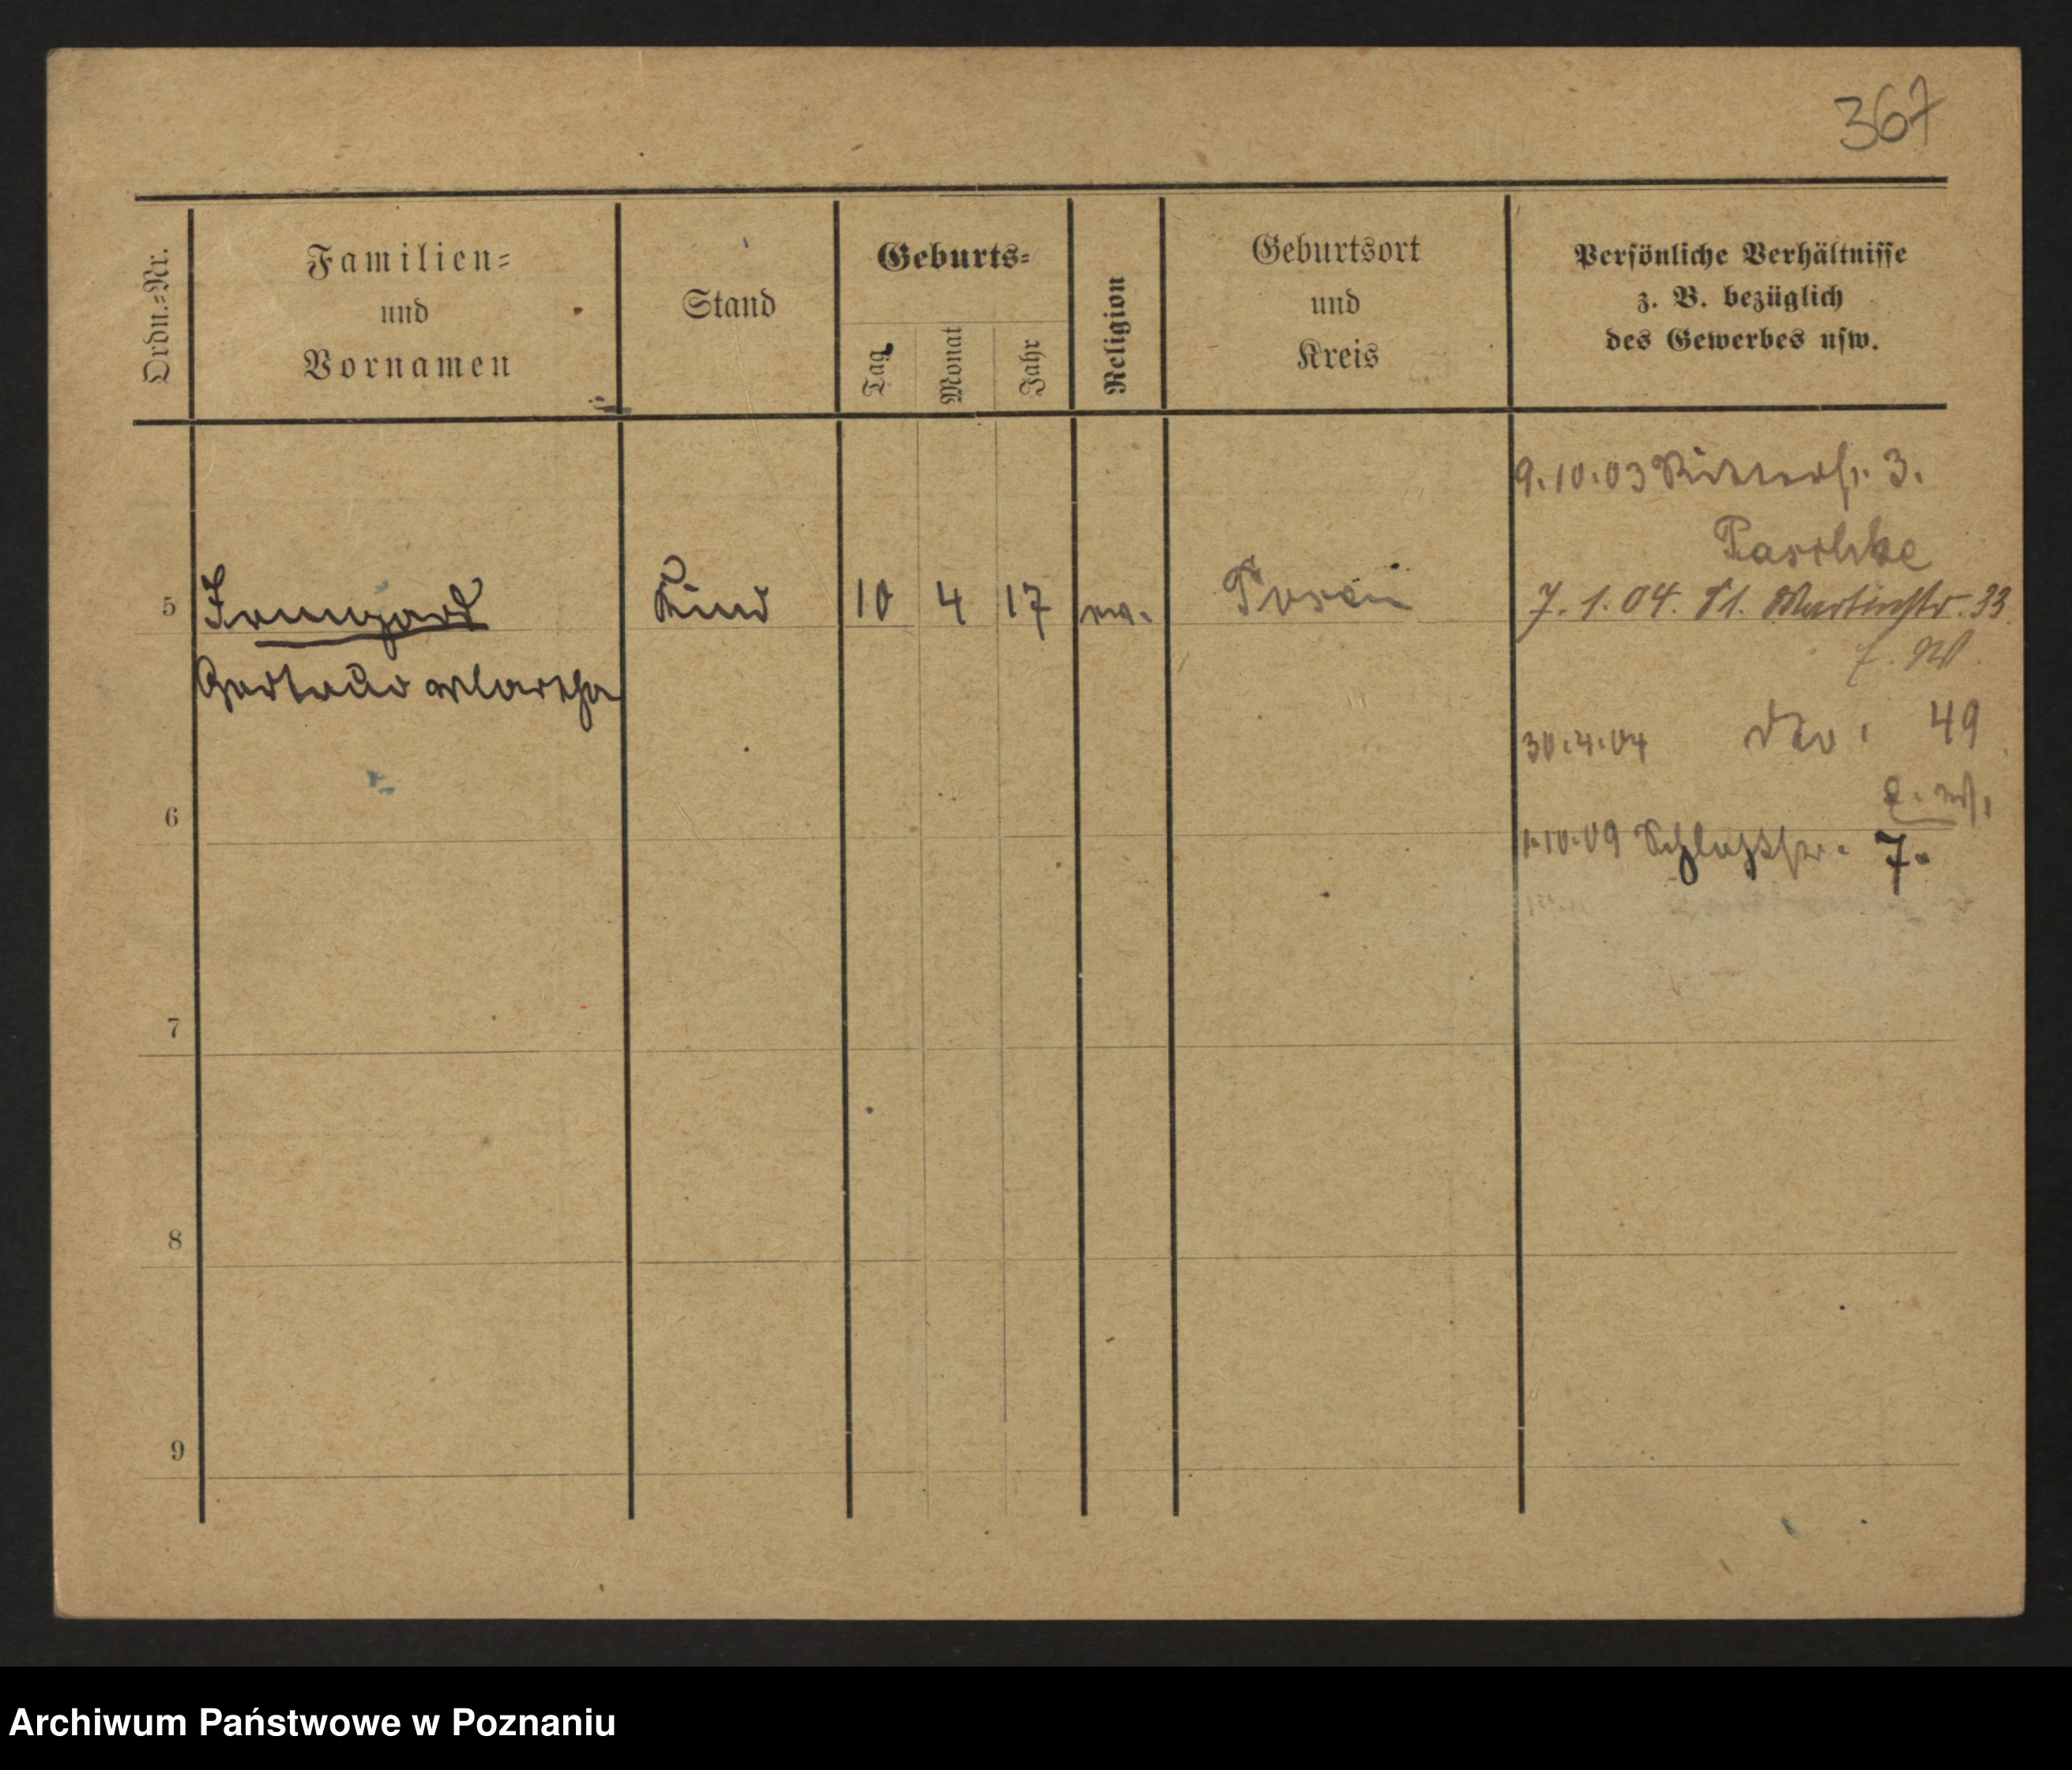 367
Ordn.=Nr.
Familien=
und
Vornamen
Stand
Geburts=
Tag
Monat
Jahr
Religion
Geburtsort
und
Kreis
Persönliche Verhältnisse
z. B. bezüglich
des Gewerbes usw.
9.10.03 Ritterstr. 3.
Paschke
5 Irmgard Kind 10 4 17 ev. Posen 7.1.04. St. Martinstr. 33
Gertrud Martha
E. W.
30.4.04 dto. 49
E. W.
6
1.10.09 Schloßstr. 7.
7
8
9
Archiwum Państwowe w Poznaniu